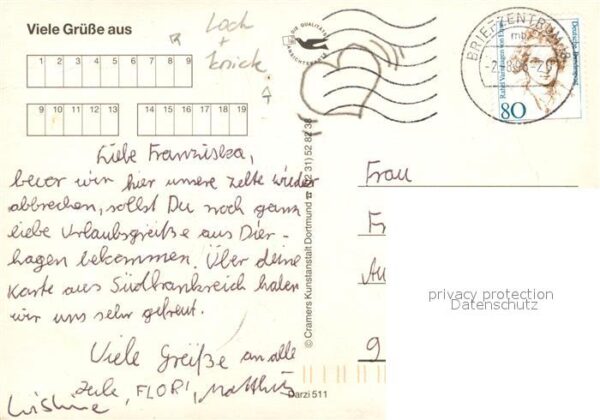 Viele Grüße aus
Loch
+
Knick
1 2 3 4 5 6 7 8 9
9 10 11 12 13
14 15 16 17 18 19
Liebe Franziska,
bevor wir hier unsere Zelte wieder
abbrechen, sollst Du noch ganz
liebe Urlaubsgrüße aus Dier-
hagen bekommen. Über deine
Karte aus Südfrankreich haben
wir uns sehr gefreut.
Viele Grüße an alle
FLORI, Matthias
© Cramers Kunstanstalt Dortmund ☎ (02 31) 52 82 38
Darzi 511
BRIEFZENTRUM 18
Deutsche Bundespost
80
Frau
privacy protection
Datenschutz